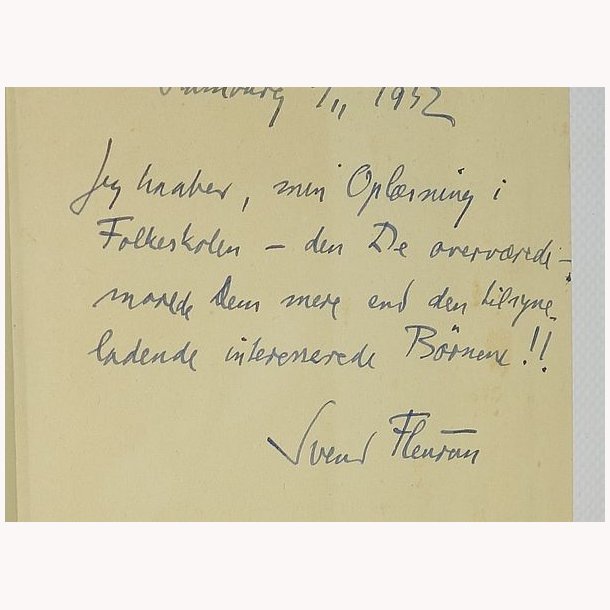 Hamburg 1/11 1932
Jeg haaber, min Oplæsning i
Folkeskolen – den De overværede –
morede Dem mere end den tilsyne-
ladende interesserede Börnene!!
Svend Fleuron